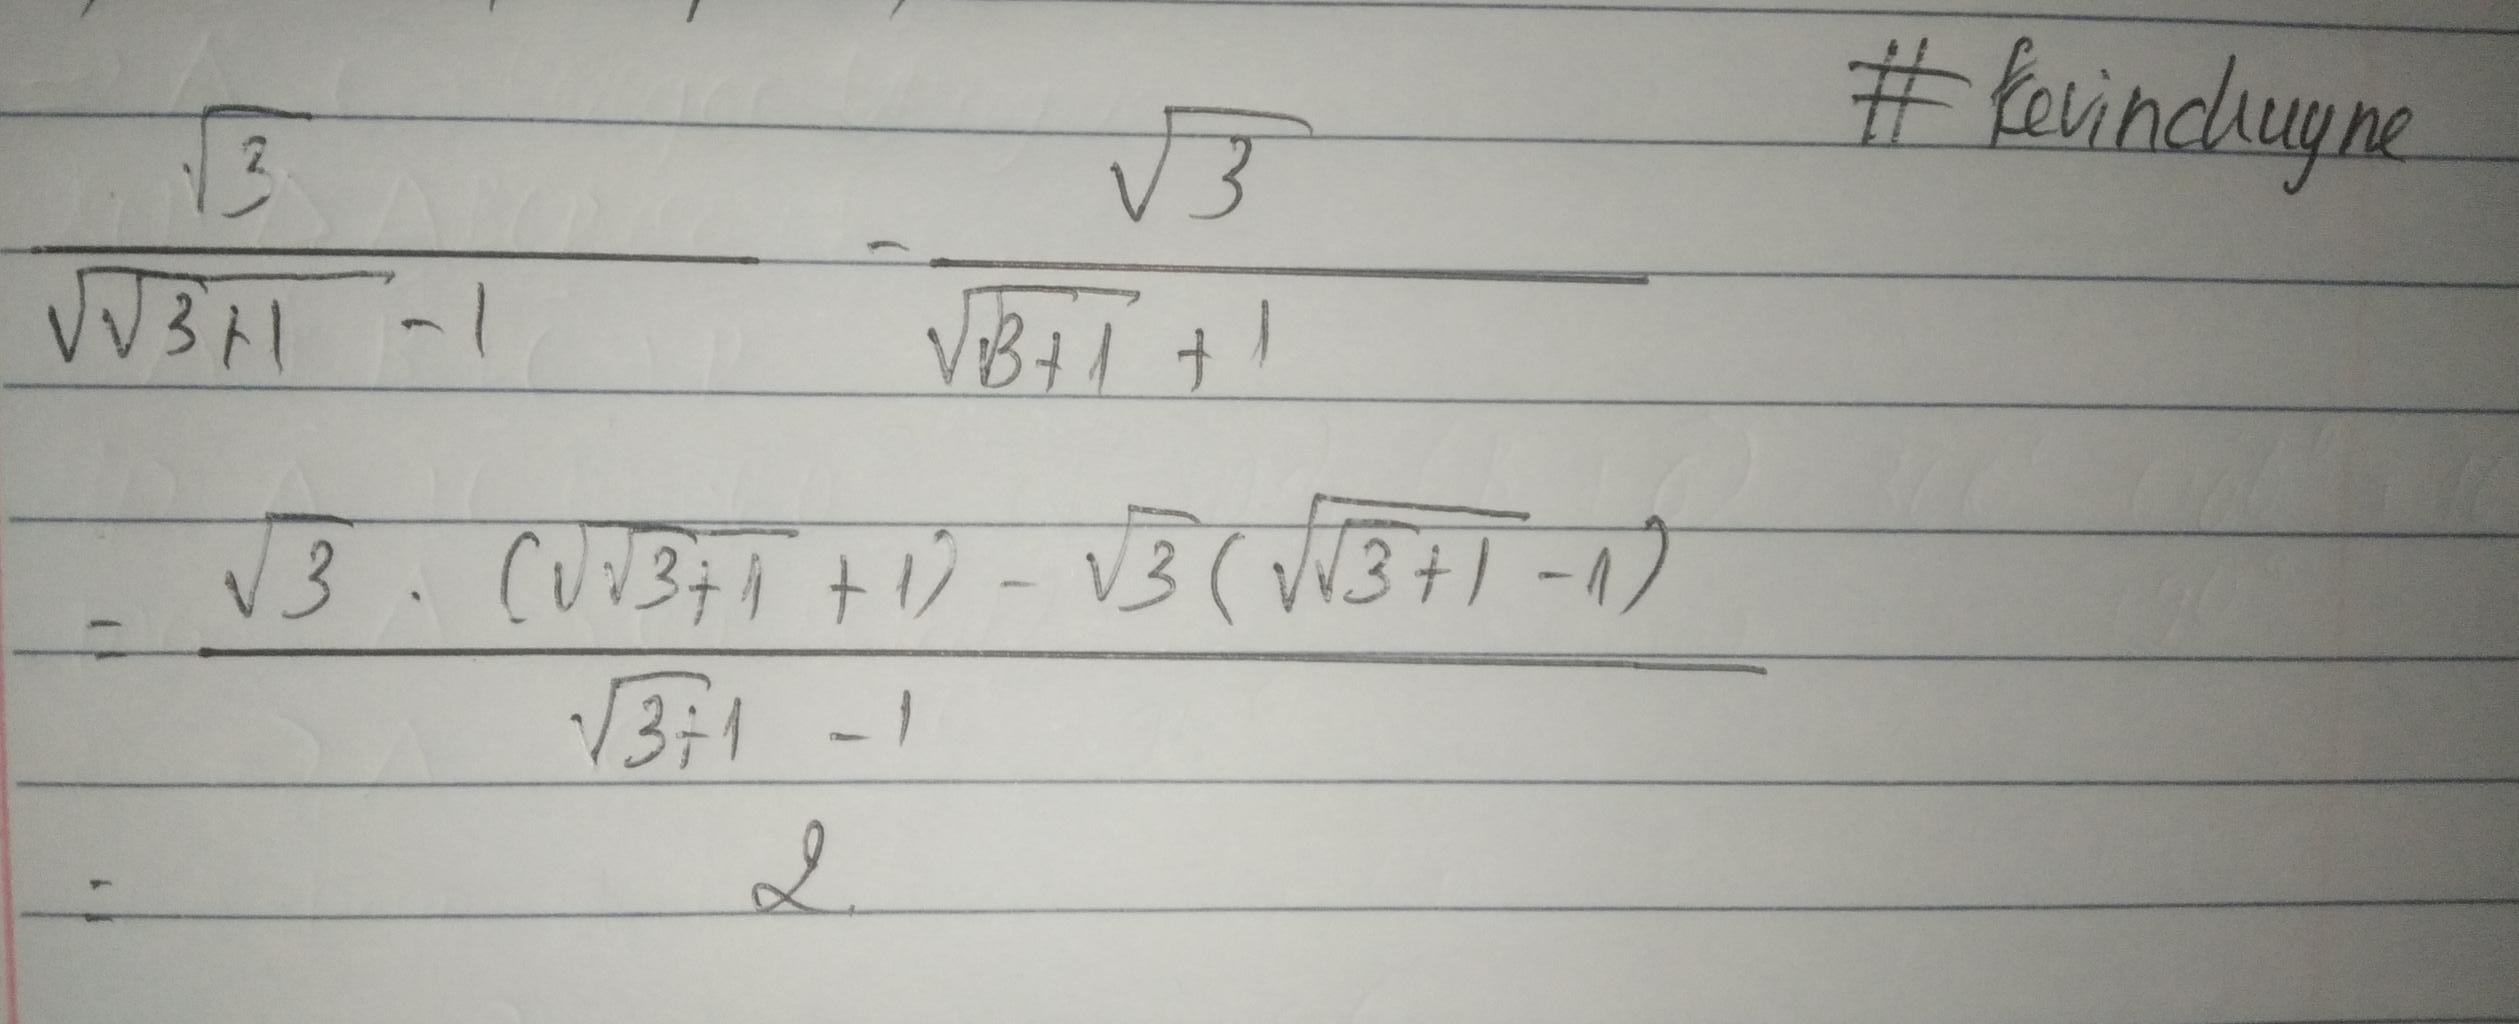 # kevinchuyne
√3 / (√(√3+1) - 1) - √3 / (√(√3+1) + 1)
= (√3 . (√(√3+1) + 1) - √3 (√(√3+1) - 1)) / (√3+1 - 1)
= 2